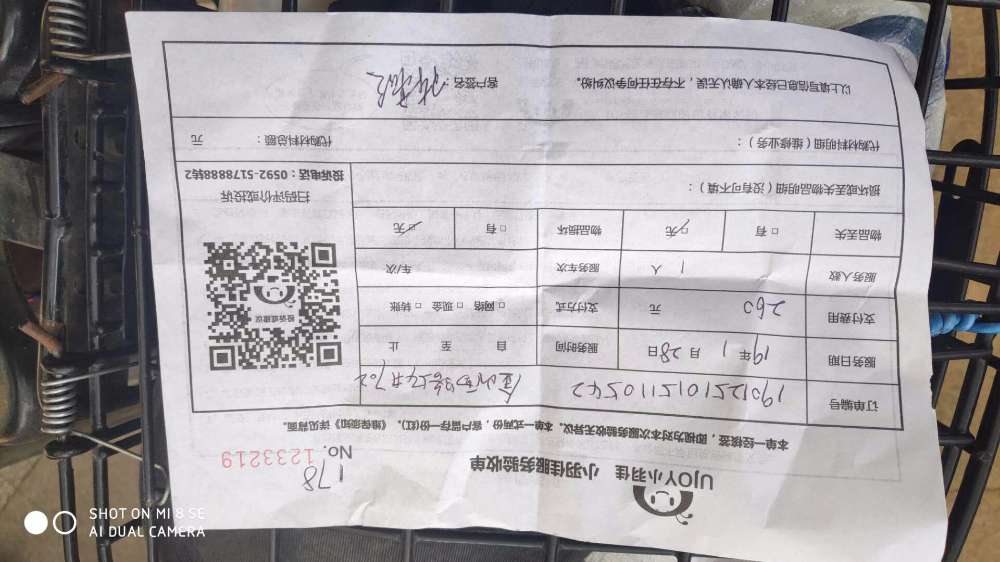 UJOY小羽佳 小羽佳服务验收单
178
No. 1233219
本单一经核签，即视为对本次服务验收无异议。本单一式两份，客户留存一份(红)。《维保须知》详见背面。
订单编号 190125101511105162
服务日期 19年1月28日 服务时间 自 至 止
支付费用 260 元 支付方式 □网络 □现金 □转账
服务人数 1 人 服务车次 车/次
物品丢失 □有 □无 物品损坏 □有 □无
投诉或建议
扫码评价或投诉
投诉电话：0592-5178888转2
损坏或丢失物品明细（没有可不填）：
代购材料明细（维修业务）： 代购材料总额： 元
以上填写信息已经本人确认无误，不存在任何争议纠纷。 客户签名：
SHOT ON MI 8 SE
AI DUAL CAMERA